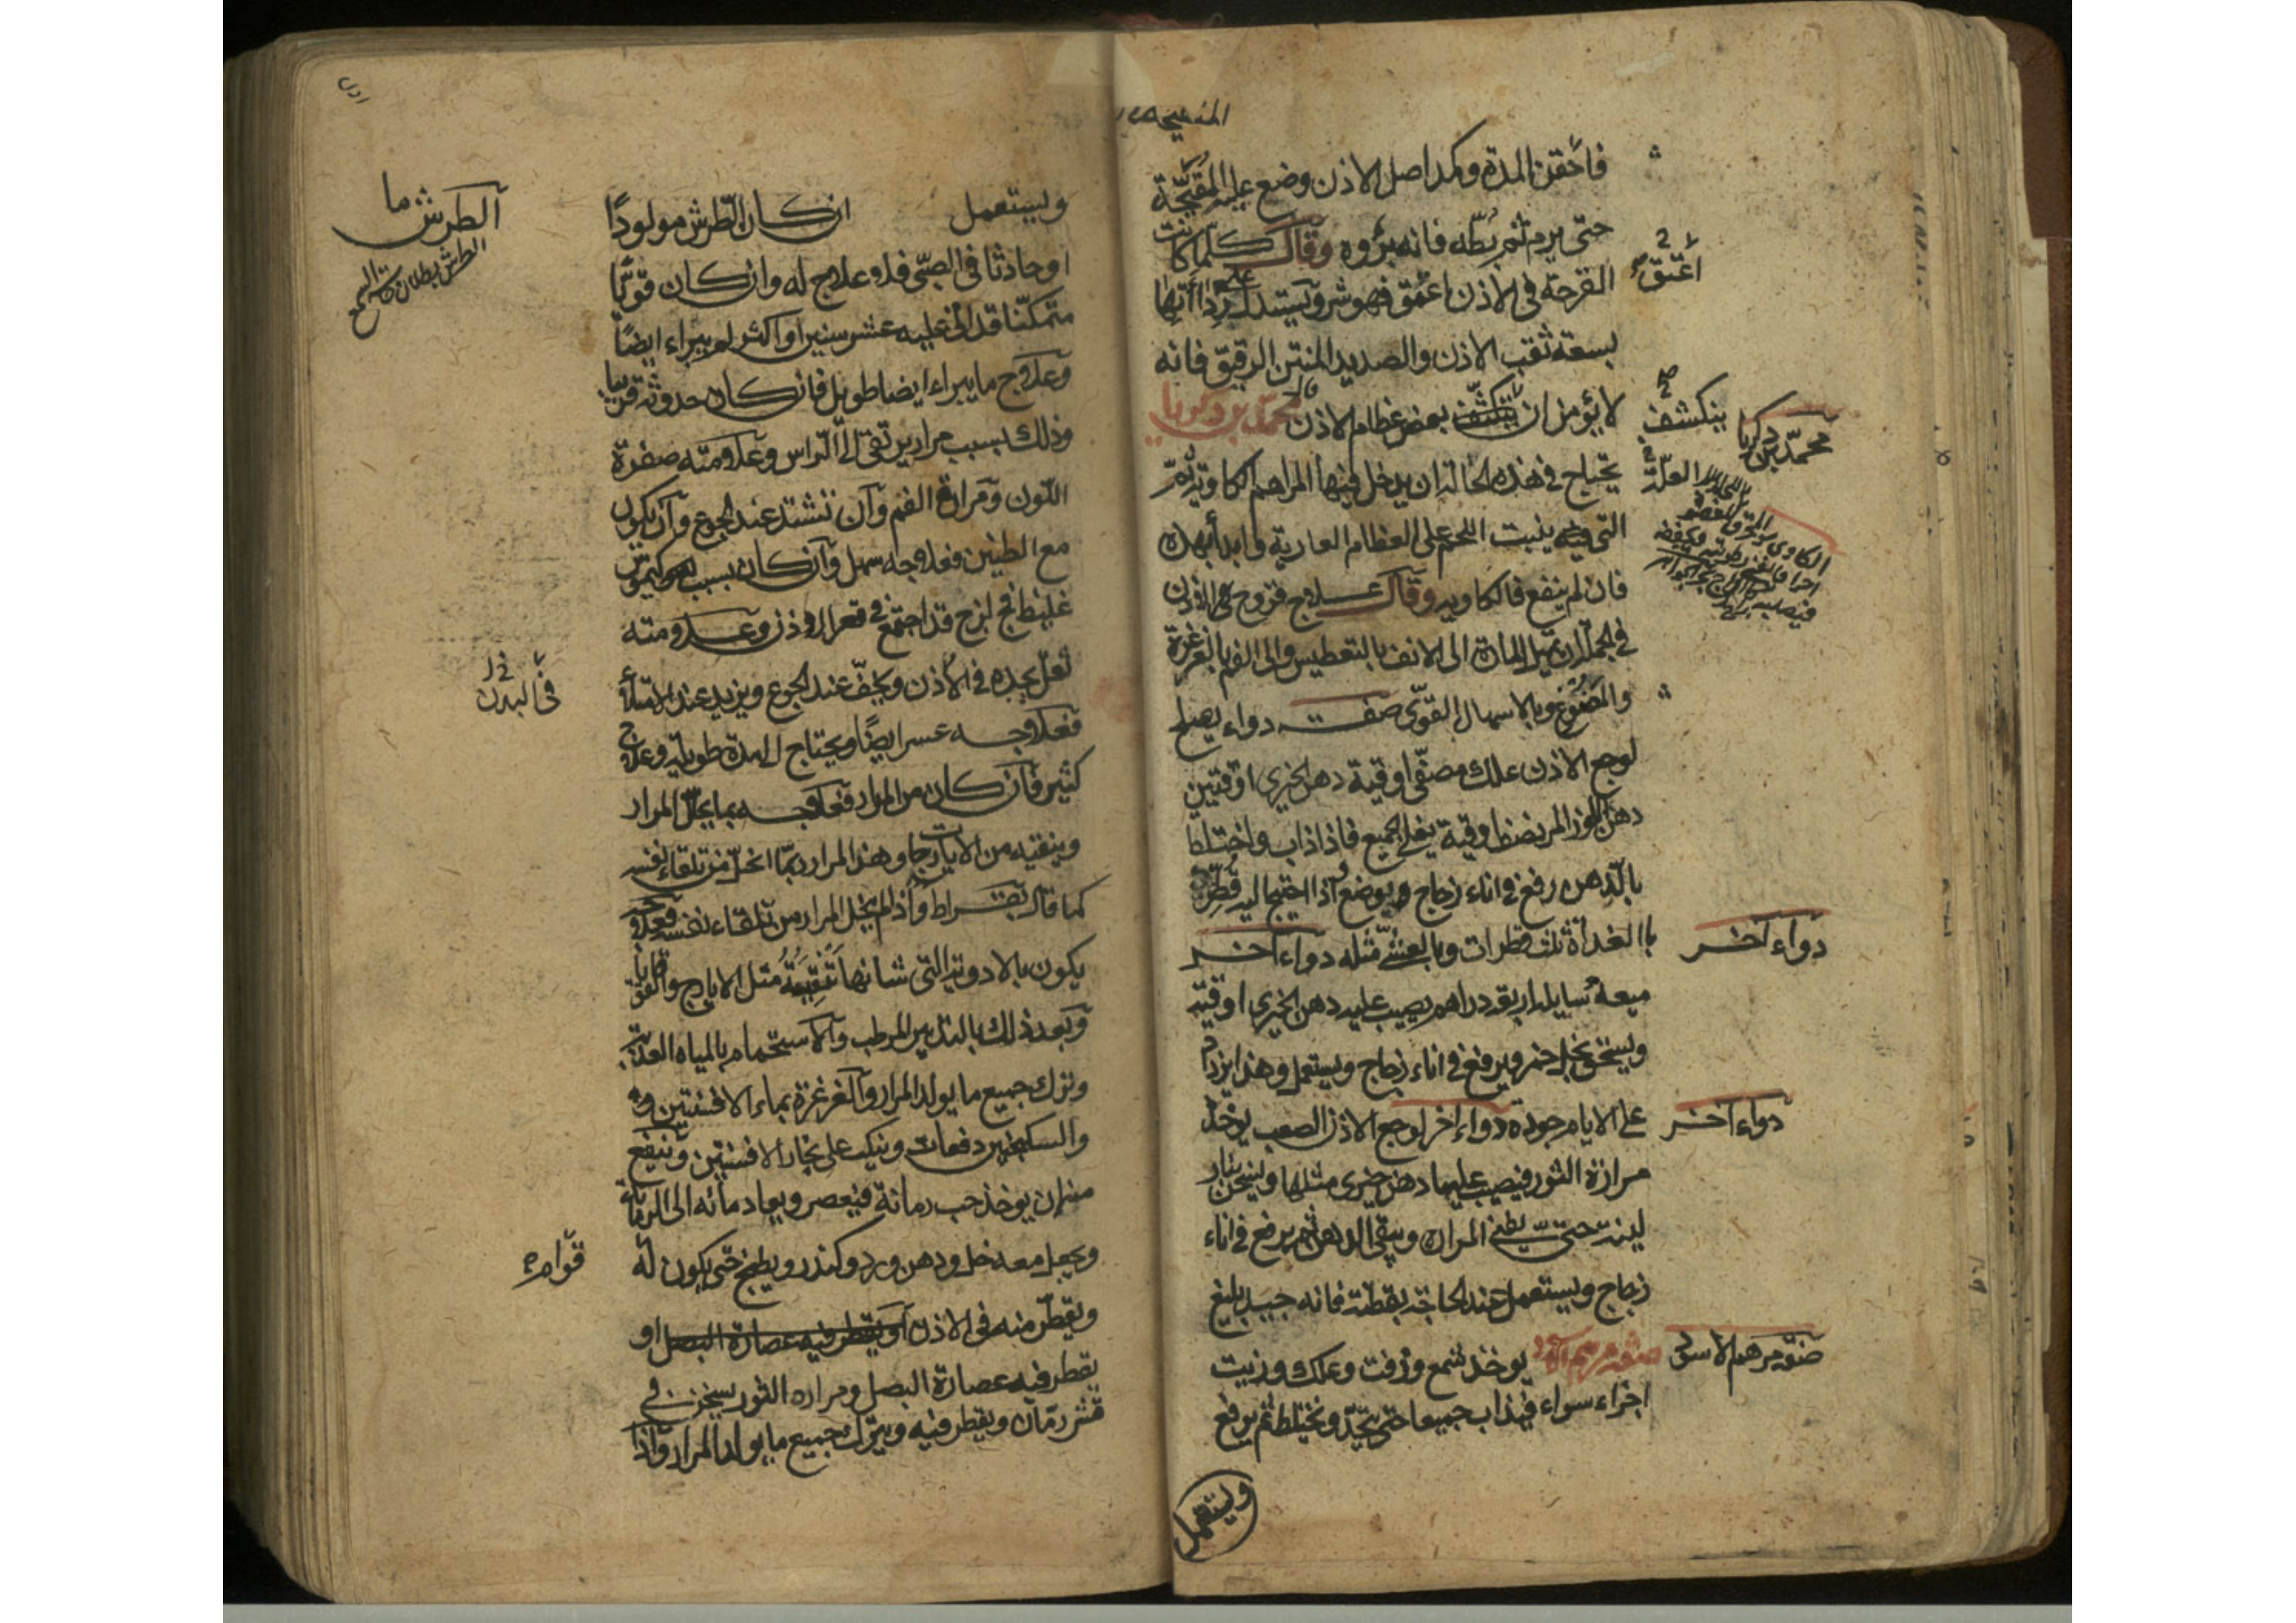 فاحقن المدة وكمد اصل الاذن وضع عليه المقيحة
حتى يرم ثم بطه فانه برؤه وقال كلما كانت
القرحة في الاذن اعمق فهو شر ويستدل على رداأتها
بسعة ثقب الاذن والصديد المنتن الرقيق فانه
لا يؤمن ان ينكشف بعض عظام الاذن محمد بن زكريا
يحتاج في هذه الحالة ان يدخل فيها المراهم الكاوية ثم
التي ينبت اللحم على العظام العارية وابدأ بهذه
فان لم ينفع فالكاوية وقال علاج قروح الاذن
في الجملة ان تميل المادة الى الانف بالتعطيس والى الفم بالغرغرة
والمضوغ وبالاسهال القوي صفة دواء يصلح
لوجع الاذن علك مصفى اوقية دهن الخيري اوقيتين
دهن اللوز المر نصف اوقية يغلى الجميع فاذا ذاب واختلط
بالدهن رفع في اناء زجاج ويوضع واذا احتيج اليه قطر
بالغداة ثلث قطرات وبالعشي مثله دواء آخر
ميعة سايلة اربعة دراهم يصب عليه دهن الخيري اوقية
ويسحق بخل خمر ويرفع في اناء زجاج ويستعمل وهذا يزداد
على الايام جودة دواء اخر لوجع الاذن الصعب يوخذ
مرارة الثور فيصب عليها دهن خيري مثلها وليسخن بنار
لينة حتى يطفى المرارة ويبقى الدهن ثم يرفع في اناء
زجاج ويستعمل عند الحاجة بقطنة فانه جيد بليغ
صفة مرهم الاسود يوخذ شمع وزفت وعلك وزيت
اجزاء سواء فيذاب جميعا حتى يتحد ويختلط ثم يرفع
ويستعمل
اعمق
ينكشف
محمد بن زكريا
العلة
دواء آخر
دواء آخر
صفة مرهم الاسود
ويستعمل ان كان الطرش مولودا
او حادثا في الصبي فلا علاج له وان كان قويا
متمكنا قد اتى عليه عشر سنين او اكثر لم يبراء ايضا
وعلاج ما يبراء ايضا طويل فان كان حدوثه قريبا
وذلك بسبب مرار يرتقى الى الراس وعلامته صفرة
اللون ومرارة الفم وان تشتد عند الجوع وان يكون
مع الطنين فعلاجه سهل وان كان بسبب كيموس
غليظ فج لزج قد اجتمع في قعر الاذن وعلامته
ثقل يجده في الاذن ويخف عند الجوع ويزيد عند الامتلأ
فعلاجه عسر ايضا ويحتاج الى مدة طويلة وعلاج
كثير فان كان من المرار فعلاجه بما يحل المرار
وينقيه من الايارجات وهذا المرار ربما انحل من تلقاء نفسه
كما قال بقراط واذا لم يحل المرار من تلقاء نفسه فعلاجه
يكون بالادوية التي شانها تنقيته مثل الايارج والقوقايا
وبعد ذلك بالتدبير المرطب والاستحمام بالمياه العذبة
وترك جميع ما يولد المرار والغرغرة بماء الافسنتين
والسكنجبين دفعات وينكب على بخار الافسنتين وينفع
منه ان يوخذ حب رمانة فيعصر ويعاد مائه الى الرمانة
ويجعل معه خل ودهن ورد وكندر ويطبخ حتى يكون له
ويقطر منه في الاذن او يقطر فيه عصارة البصل او
يقطر فيه عصارة البصل ومراره الثور يسخن في
قشر رمان ويقطر فيه ويترك جميع ما يولد المرار واذا
الطرش ما
الطرش بطلان السمع
في البدن
قوام